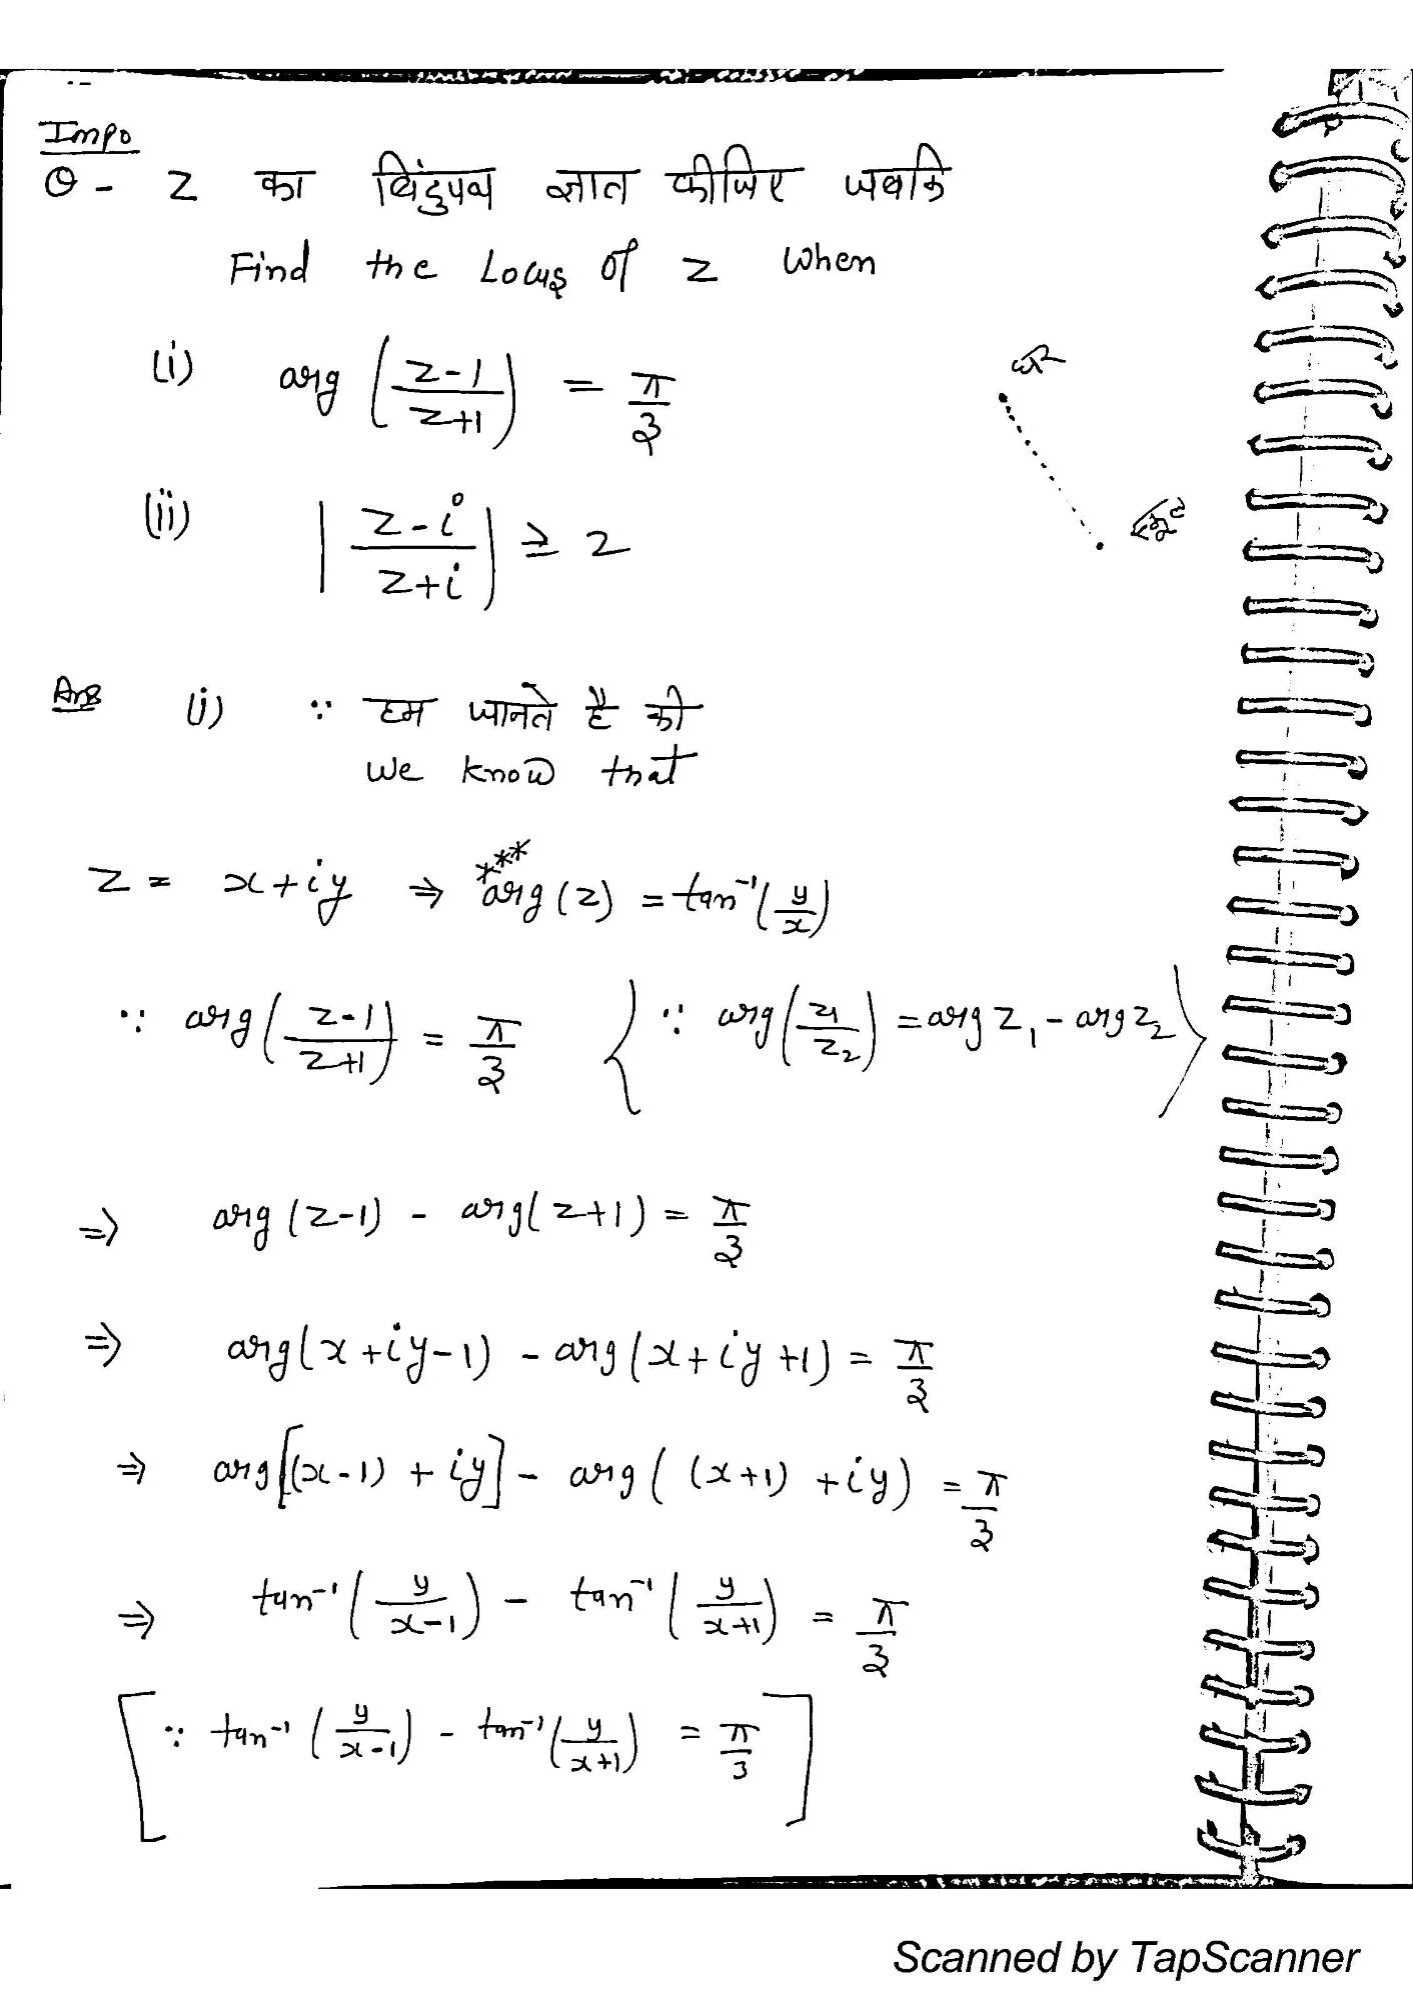 Impo
Q - z का बिंदुपथ ज्ञात कीजिए जबकि
Find the Locus of z when
(i) arg (z-1/z+1) = π/3
घर
(ii) |z-i/z+i| ≥ 2
स्कूल
Ans (i) ∵ हम जानते है की
We know that
z = x+iy ⇒ *** arg(z) = tan⁻¹(y/x)
∵ arg(z-1/z+1) = π/3 {∵ arg(z₁/z₂) = arg z₁ - arg z₂}
⇒ arg(z-1) - arg(z+1) = π/3
⇒ arg(x+iy-1) - arg(x+iy+1) = π/3
⇒ arg[(x-1) + iy] - arg((x+1) + iy) = π/3
⇒ tan⁻¹(y/x-1) - tan⁻¹(y/x+1) = π/3
[∵ tan⁻¹(y/x-1) - tan⁻¹(y/x+1) = π/3]
Scanned by TapScanner